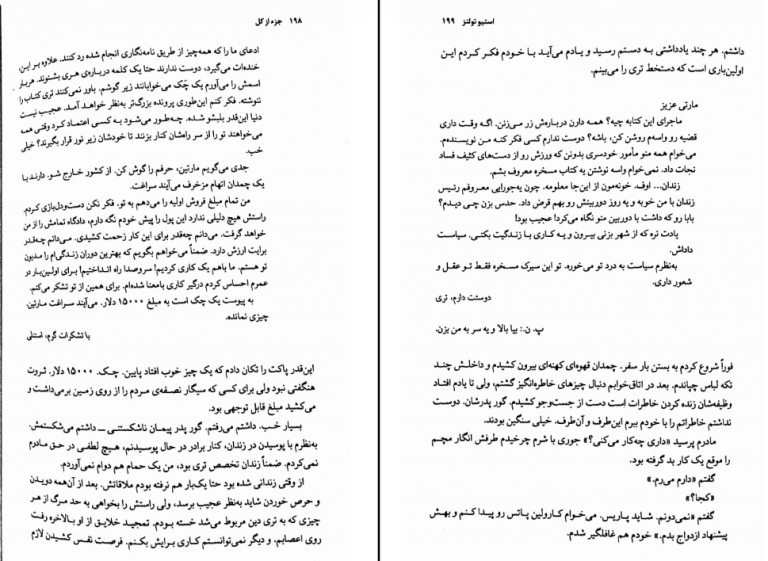 ۱۹۸ جزء از کل
ادعای ما را که همه‌چیز از طریق نامه‌نگاری انجام شده رد کنند. علاوه بر این
خنده‌ات می‌گیرد، دوست ندارند حتا یک کلمه درباره‌ی هری بشنوند. هربار
اسمش را می‌آورم یک چَک می‌خوابانند زیر گوشم. باور نمی‌کنند تری کتاب را
نوشته. فکر کنم این‌طوری پرونده بزرگ‌تر به‌نظر خواهد آمد. عجیب نیست
دنیا این‌قدر بلبشو شده. چه‌طور می‌شود به کسی اعتماد کرد وقتی همه
می‌خواهند تو را از سر راه‌شان کنار بزنند تا خودشان زیر نور قرار بگیرند؟ خیلی
خب.
جدی می‌گویم مارتین، حرفم را گوش کن. از کشور خارج شو. دارند با
یک چمدان اتهام مزخرف می‌آیند سراغت.
من تمام مبلغ فروش اولیه را می‌دهم به تو. فکر نکن دست‌ودل‌بازی کردم.
راستش هیچ دلیلی ندارد این پول را پیش خودم نگه دارم، دادگاه تمامش را از من
خواهد گرفت. می‌دانم چه‌قدر برای این کار زحمت کشیدی. می‌دانم چه‌قدر
برایت ارزش دارد. ضمناً می‌خواهم بگویم که بهترین دوران زندگی‌ام را مدیون
تو هستم. ما باهم یک کاری کردیم! سروصدا راه انداختیم! برای اولین‌بار در
عمرم احساس کردم درگیر کاری بامعنا شده‌ام. برای همین از تو تشکر می‌کنم.
به پیوست یک چک است به مبلغ ۱۵۰۰۰ دلار. می‌آیند سراغت مارتین.
چیزی نمانده.
با تشکرات گرم، استنلی
این‌قدر پاکت را تکان دادم که یک چیز خوب افتاد پایین. چک. ۱۵۰۰۰ دلار. ثروت
هنگفتی نبود ولی برای کسی که سیگار نصفه‌ی مردم را از روی زمین برمی‌داشت و
می‌کشید مبلغ قابل توجهی بود.
بسیار خب. داشتم می‌رفتم. گور پدر پیمان ناشکستنی ــ داشتم می‌شکستمش.
به‌نظرم با پوسیدن در زندان، کنار برادر در حال پوسیدنم، هیچ لطفی در حق مادرم
نمی‌کردم. ضمناً زندان تخصص تری بود، من یک حمام هم دوام نمی‌آوردم.
از وقتی زندانی شده بود حتا یک‌بار هم نرفته بودم ملاقاتش. بعد از آن‌همه دویدن
و حرص خوردن شاید به‌نظر عجیب برسد، ولی راستش را بخواهی به حد مرگ از هر
چیزی که به تری دین مربوط می‌شد خسته بودم. تمجید خلایق از او بالاخره رفت
روی اعصابم. و دیگر نمی‌توانستم کاری برایش بکنم. فرصت نفس کشیدن لازم
استیو تولتز ۱۹۹
داشتم. هر چند یادداشتی به دستم رسید و یادم می‌آید با خودم فکر کردم این
اولین‌باری است که دستخط تری را می‌بینم.
مارتی عزیز
ماجرای این کتابه چیه؟ همه دارن درباره‌ش زر می‌زنن. اگه وقت داری
قضیه رو واسه‌م روشن کن، باشه؟ دوست ندارم کسی فکر کنه من نویسنده‌م.
می‌خوام همه منو مأمور خودسری بدونن که ورزش رو از دست‌های کثیف فساد
نجات داد. نمی‌خوام واسه نوشتن یه کتاب مسخره معروف بشم.
زندان... اوف. خونه‌مون از این‌جا معلومه. چون یه‌جورایی معروفم رئیس
زندان با من خوبه و یه روز دوربینش رو بهم قرض داد. حدس بزن چی دیدم؟
بابا رو که داشت با دوربین منو نگاه می‌کرد! عجیب بود!
یادت نره که از شهر بزنی بیرون و یه کاری با زندگیت بکنی. سیاست
داداش.
به‌نظرم سیاست به درد تو می‌خوره. تو این سیرک مسخره فقط تو عقل و
شعور داری.
دوستت دارم، تری
پ. ن.: بیا بالا و یه سر به من بزن.
فوراً شروع کردم به بستن بار سفر. چمدان قهوه‌ای کهنه‌ای بیرون کشیدم و داخلش چند
تکه لباس چپاندم. بعد در اتاق‌خوابم دنبال چیزهای خاطره‌انگیز گشتم، ولی تا یادم افتاد
وظیفه‌شان زنده کردن خاطرات است دست از جست‌وجو کشیدم. گور پدرشان. دوست
نداشتم خاطراتم را با خودم ببرم این‌طرف و آن‌طرف. خیلی سنگین بودند.
مادرم پرسید «داری چه‌کار می‌کنی؟» جوری با شرم چرخیدم طرفش انگار مچم
را موقع یک کار بد گرفته بود.
گفتم «دارم می‌رم.»
«کجا؟»
گفتم «نمی‌دونم. شاید پاریس. می‌خوام کارولین پاتس رو پیدا کنم و بهش
پیشنهاد ازدواج بدم.» خودم هم غافلگیر شدم.